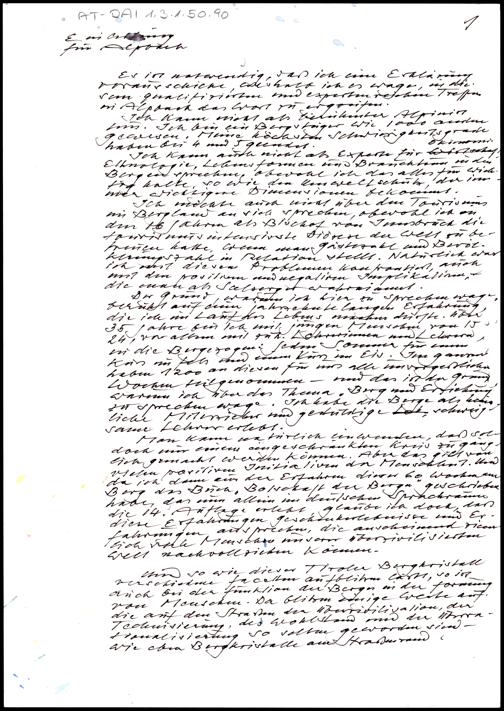 AT-DAI 1.3.1.50.90
1
Einleitung
für Alpbach
Es ist notwendig, daß ich eine Erklärung
vorausschicke, weshalb ich es wage, in die-
sem qualifizierten und expertenreichen Treffen
in Alpbach das Wort zu ergreifen.
Ich kann nicht als Alpinist
Ich bin ein Bergsteiger wie 1000 andere
gewesen. Meine höchsten Schwierigkeitsgrade
haben bei 4 und 5 geendet.
Ich kann auch nicht als Experte für
Ethnologie, Lebensformen und Brauchtum in den
Bergen sprechen, obwohl ich das alles für wich-
tig halte, so wie den Umweltschutz, der
immer wichtigere Dimensionen bekommt.
Ich möchte auch nicht über den Tourismus
im Bergland an sich sprechen, obwohl ich in
den 16 Jahren als Bischof von Innsbruck die
tourismusintensivste Diözese der Welt zu be-
treuen hatte, wenn man Gästezahl und Bevöl-
kerungszahl in Relation stellt. Natürlich war
ich mit diesen Problemen konfrontiert, auch
mit den positiven und negativen Implikationen,
die man als Seelsorger wahrnimmt.
Der Grund, warum ich hier zu sprechen wage,
beruht auf einer jahrzehntelangen Erfahrung
die ich im Lauf des Lebens machen durfte. Über
35 Jahre bin ich mit jungen Menschen, von 15 -
24, vor allem mit Lehrerinnen und Lehrern,
in die Berge gezogen. Jeden Sommer für einen
Kurs im Fels und einen Kurs im Eis. Im ganzen
haben 1200 an diesen für uns alle unvergeßlichen
Wochen teilgenommen – und das ist der Grund
warum ich über das Thema "Berg und Erziehung"
zu sprechen wage. Ich habe die Berge als
Miterzieher und geduldige schweig-
same Lehrer erlebt.
Man kann natürlich einwenden, daß sol-
doch nur einem eingeschränkten Kreis zugäng-
lich gemacht werden können. Aber das gilt von
vielen positiven Initiativen der Menschheit. Und
da ich dann aus der Erfahrung dieser 60 Wochen am
Berg das Büchlein, Botschaft der Berge geschrieben
habe, das nun allein im deutschen Sprachraum
die 14. Auflage erlebt, glaube ich doch, daß
diese Erfahrungen Geschenkerlebnisse und Er-
fahrungen aussprechen, die anscheinend ziem-
lich viele Menschen unserer überzivilisierten
Welt nachvollziehen können.
Und so wie dieser Tiroler Bergkristall
verschiedene Facetten aufblitzen läßt, so ist
auch bei der Funktion der Berge in der Formung
von Menschen. Da blitzen einige Werte auf,
die auf den Straßen der Überzivilisation, der
Technisierung, des Wohlstand und der Überra-
tionalisierung so selten geworden sind –
wie eben Bergkristalle am Straßenrand.